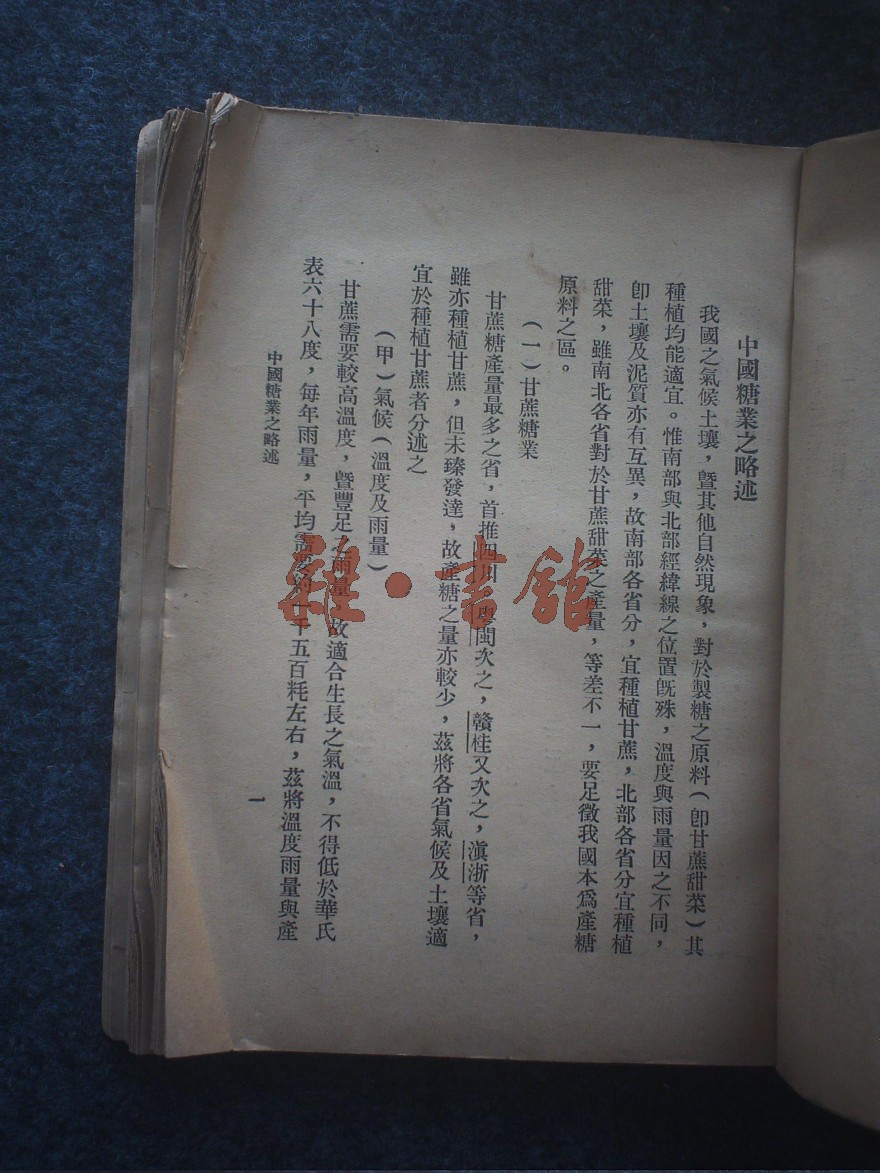 中國糖業之略述
我國之氣候土壤，曁其他自然現象，對於製糖之原料（卽甘蔗甜菜）其
種植均能適宜。惟南部與北部經緯線之位置旣殊，溫度與雨量因之不同，
卽土壤及泥質亦有互異，故南部各省分，宜種植甘蔗，北部各省分宜種植
甜菜，雖南北各省對於甘蔗甜菜之產量，等差不一，要足徵我國本爲產糖
原料之區。
（一）甘蔗糖業
甘蔗糖產量最多之省，首推四川，粵閩次之，贛桂又次之，滇浙等省，
雖亦種植甘蔗，但未臻發達，故產糖之量亦較少，茲將各省氣候及土壤適
宜於種植甘蔗者分述之
（甲）氣候（溫度及雨量）
甘蔗需要較高溫度，曁豐足之雨量，故適合生長之氣溫，不得低於華氏
表六十八度，每年雨量，平均需要約一千五百粍左右，茲將溫度雨量與產
中國糖業之略述
一
雜·書館